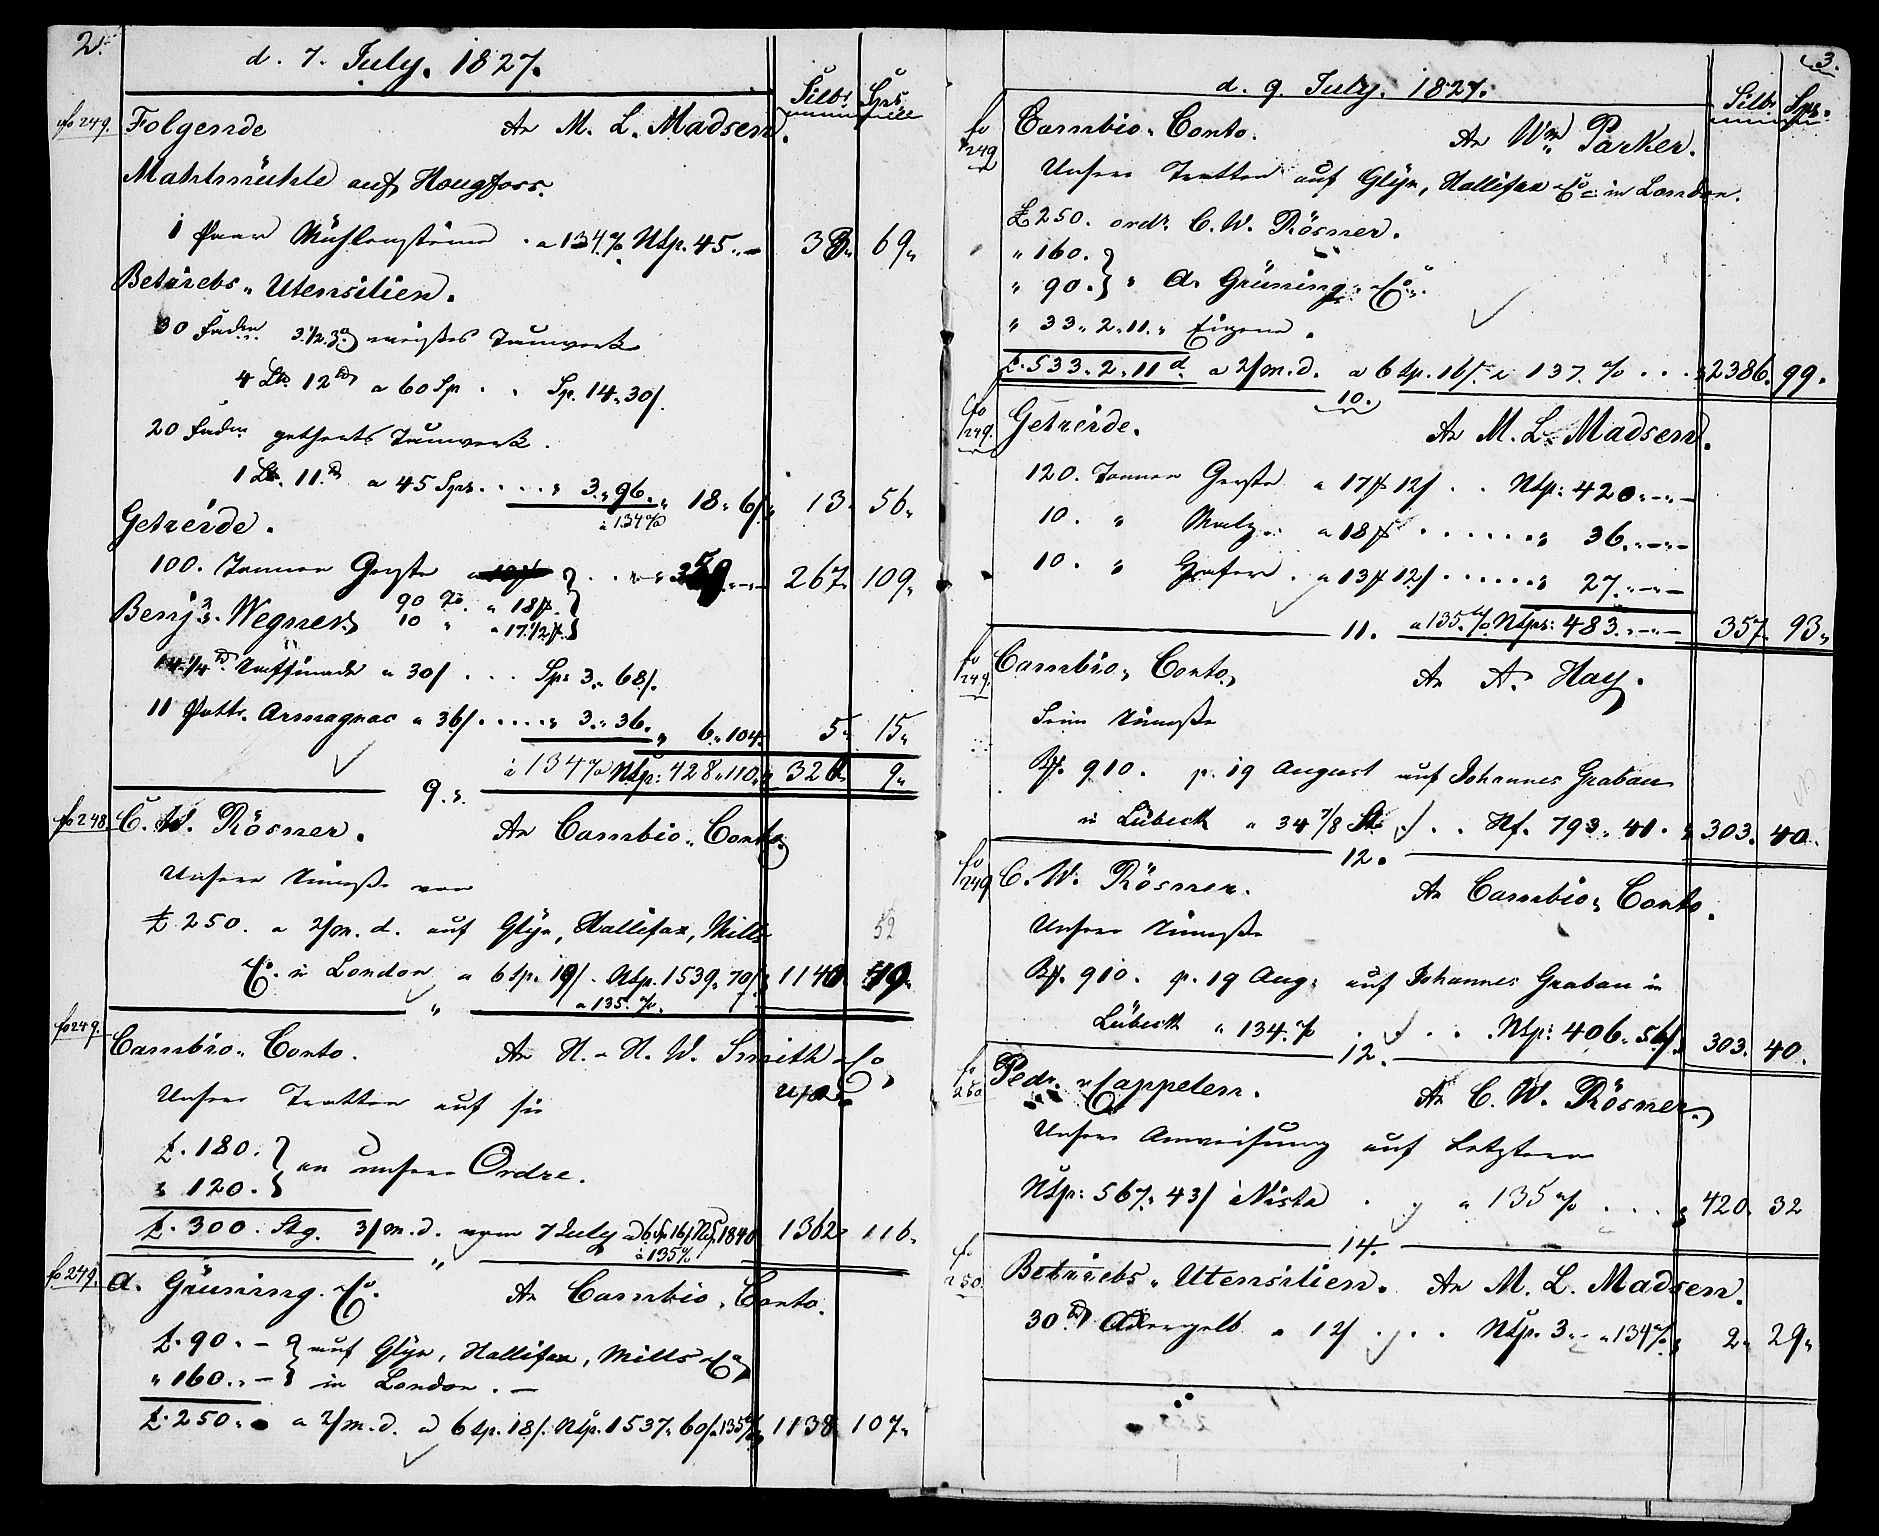 2.
d. 7. July. 1827.
Silbr Sps.
fo 249. Folgende An M. L. Madsen.
Mahlmühle auf Hougfoss.
1 Paar Mühlensteine . a 134 % NSp. 45.. — 33.. 69..
Betriebs.. Utensilien.
30 Faden 3.1/2.3. weißes Tauwerk
4 Lb. 12 a 60 Sp . . Sp. 14.. 30/.
20 Faden getheerts Tauwerk.
1 Lb. 11. a 45 Sps. . . . . 3.. 96. .. 18.. 6/. 13. 56..
a 134 %
Getreide.
100. Tonnen Gerste . . .. 359..—..— 267.. 109..
90 To. a 18 .
Benj. Wegner. 10 " a 17.1/2 .
14.1/4 Raffinade a 30/ . . . Sps 3.. 68/.
11 Potte. Armagnac a 36/. . . . . 3.. 36. .. 6.. 104. 5.. 15..
a 134 % NSp: 428..110.. 320.. 9..
9.
fo 248. C. W. Rösner. An Cambio.. Conto.
Unsere Rimesse von
£ 250. a 2/m. d. auf Glyn, Hallifax, Mills
52
& Co. in London a 6 Sp. 19/. NSp. 1539. 70/. 1140. 49.
a 135. %.
"
fo 249. Cambio.. Conto. An H. & H. W. Smith & Co
Unsere Tratten auf sie
£. 180. } an unsere Ordre.
" 120. }
£. 300. Stg. 3/m. d. vom 7 July a 6 Sp. 16/. NSp. 1840 1362.. 116.
a 135 %
"
fo 249. A. Grüning & Co. An Cambio.. Conto.
£. 90. — } auf Glyn, Hallifax, Mills & Co
" 160.. — } in London. —
£. 250.. a 2/m. d. a 6 Sp. 18/. NSp. 1537.. 60/. a 135 % 1138 107..
3.
d. 9. July. 1827.
Silbr Sps.
fo 249 Cambio.. Conto. An Wm Parker.
Unsere Tratten auf Glyn, Hallifax & Co in London.
£ 250. ordr. C. W. Rösner.
" 160. }
" 90. } " A. Grüning & Co.
" 33.. 2.. 11.. Eigene.
£. 533. 2.. 11 d. a 2/m. d. a 6 Sp. 16/. a 137. % . . . 2386. 99.
10.
fo 249. Getreide. An M. L. Madsen.
120. Tonnen Gerste a 17 12/ . . NSp: 420..—..—
10. " Malz.. a 18 . . . . . . 36..—..—
10. " Hafer. a 13 12/ . . . . . 27..—..—
a 135. % NSps: 483..—..— 357. 93..
11.
fo 249. Cambio.. Conto. An A. Hay.
Seine Rimesse
910. p. 19 August auf Johannes Grabau
in Lübeck a 34 7/8 . . . 793.. 41. 303. 40.
12.
fo 249 C. W. Rösner. An Cambio.. Conto.
Unsere Rimesse
910. p. 19 Aug. auf Johannes Grabau in
Lübeck a 134. % . . . NSp: 406.. 56/. 303. 40.
12.
fo 250 Pedr. Cappelen. An C. W. Rösner.
Unsere Anweisung auf Letztern
NSp: 567.. 43/ a Vista . a 135 % . . . 420. 32
14.
fo 250. Betriebs.. Utensilien. An M. L. Madsen.
30. Ockergelb a 12/ . . . NSp. 3..— a 134 % 2.. 29..